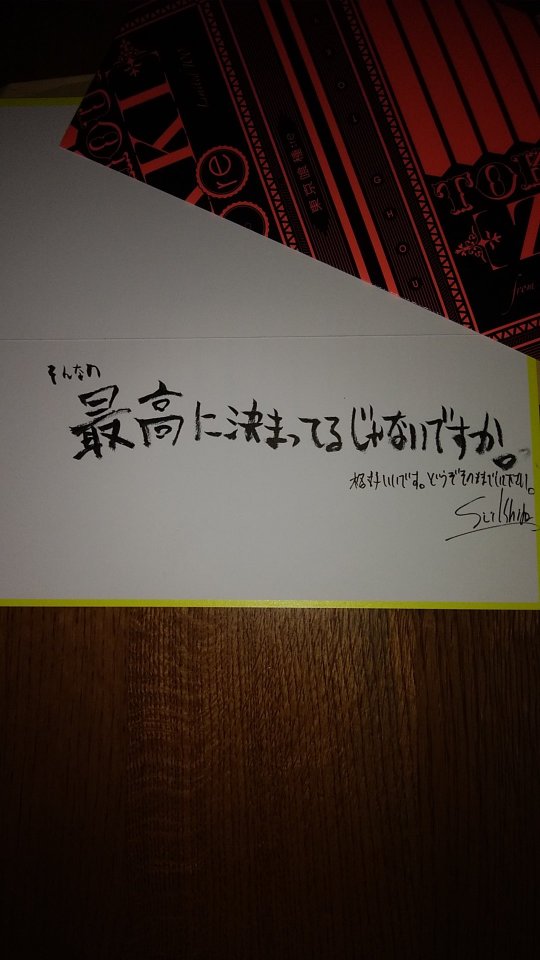 TOK
Z
from
KI
re
東京喰種:re
TOKYO GHOU
そんなの
最高に決まってるじゃないですか。
格好いいです。どうぞそのままでいて下さい。
Sui Ishida